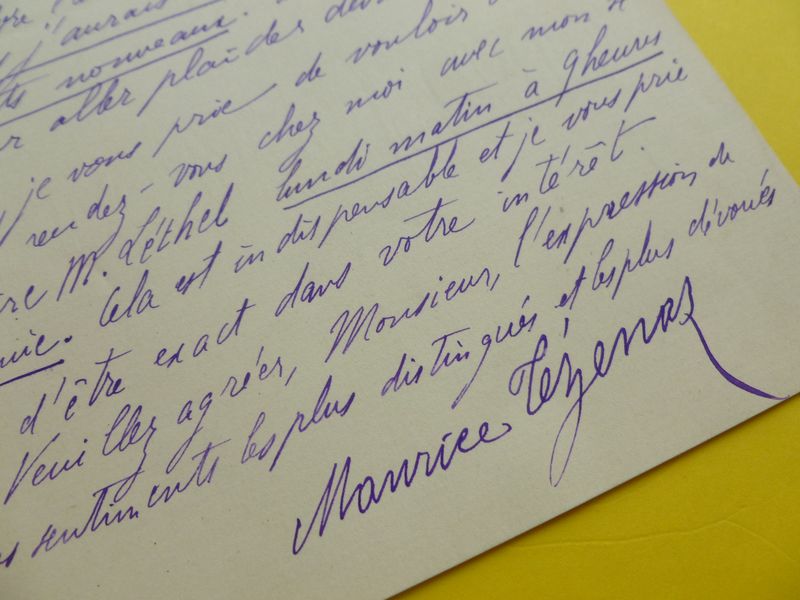 j'aurais
nouveaux.
aller plaider
je vous prie de vouloir
rendez-vous chez moi avec mon
M. Léthel lundi matin à 9 heures
Cela est indispensable et je vous prie
d'être exact dans votre intérêt.
Veuillez agréer, Monsieur, l'expression de
sentiments les plus distingués et les plus dévoués
Maurice Tézenas